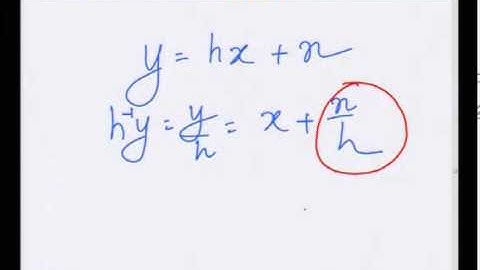 y = hx + n
h⁻¹y = y/h = x + n/h